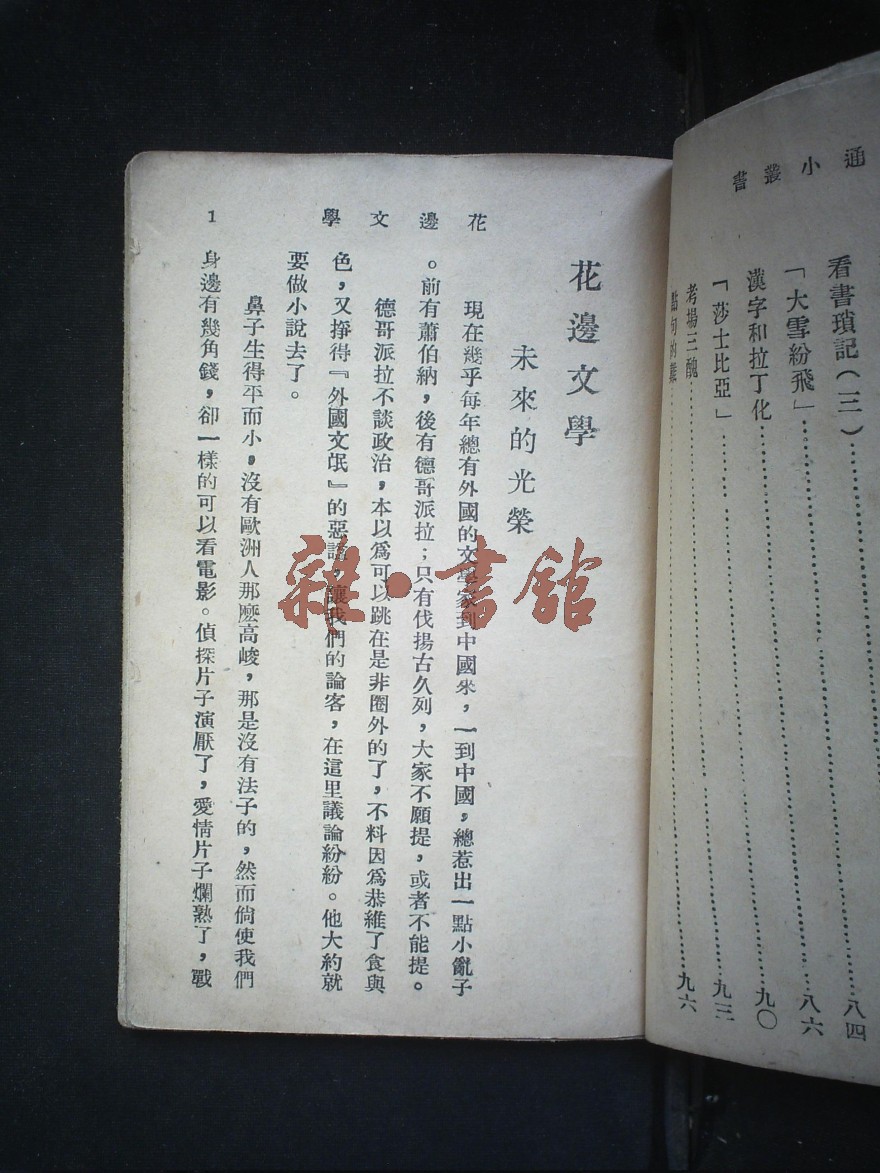 通小叢書
看書瑣記(三)⋯⋯八四
「大雪紛飛」⋯⋯八六
漢字和拉丁化⋯⋯九〇
「莎士比亞」⋯⋯九三
考場三醜
點句的難⋯⋯九六
花邊文學
花邊文學
未來的光榮
現在幾乎每年總有外國的文學家到中國來,一到中國,總惹出一點小亂子
。前有蕭伯納,後有德哥派拉;只有伐揚古久列,大家不願提,或者不能提。
德哥派拉不談政治,本以爲可以跳在是非圈外的了,不料因爲恭維了食與
色,又掙得『外國文氓』的惡謚,讓我們的論客,在這里議論紛紛。他大約就
要做小說去了。
鼻子生得平而小,沒有歐洲人那麽高峻,那是沒有法子的,然而倘使我們
身邊有幾角錢,卻一樣的可以看電影。偵探片子演厭了,愛情片子爛熟了,戰
1
雜·書館